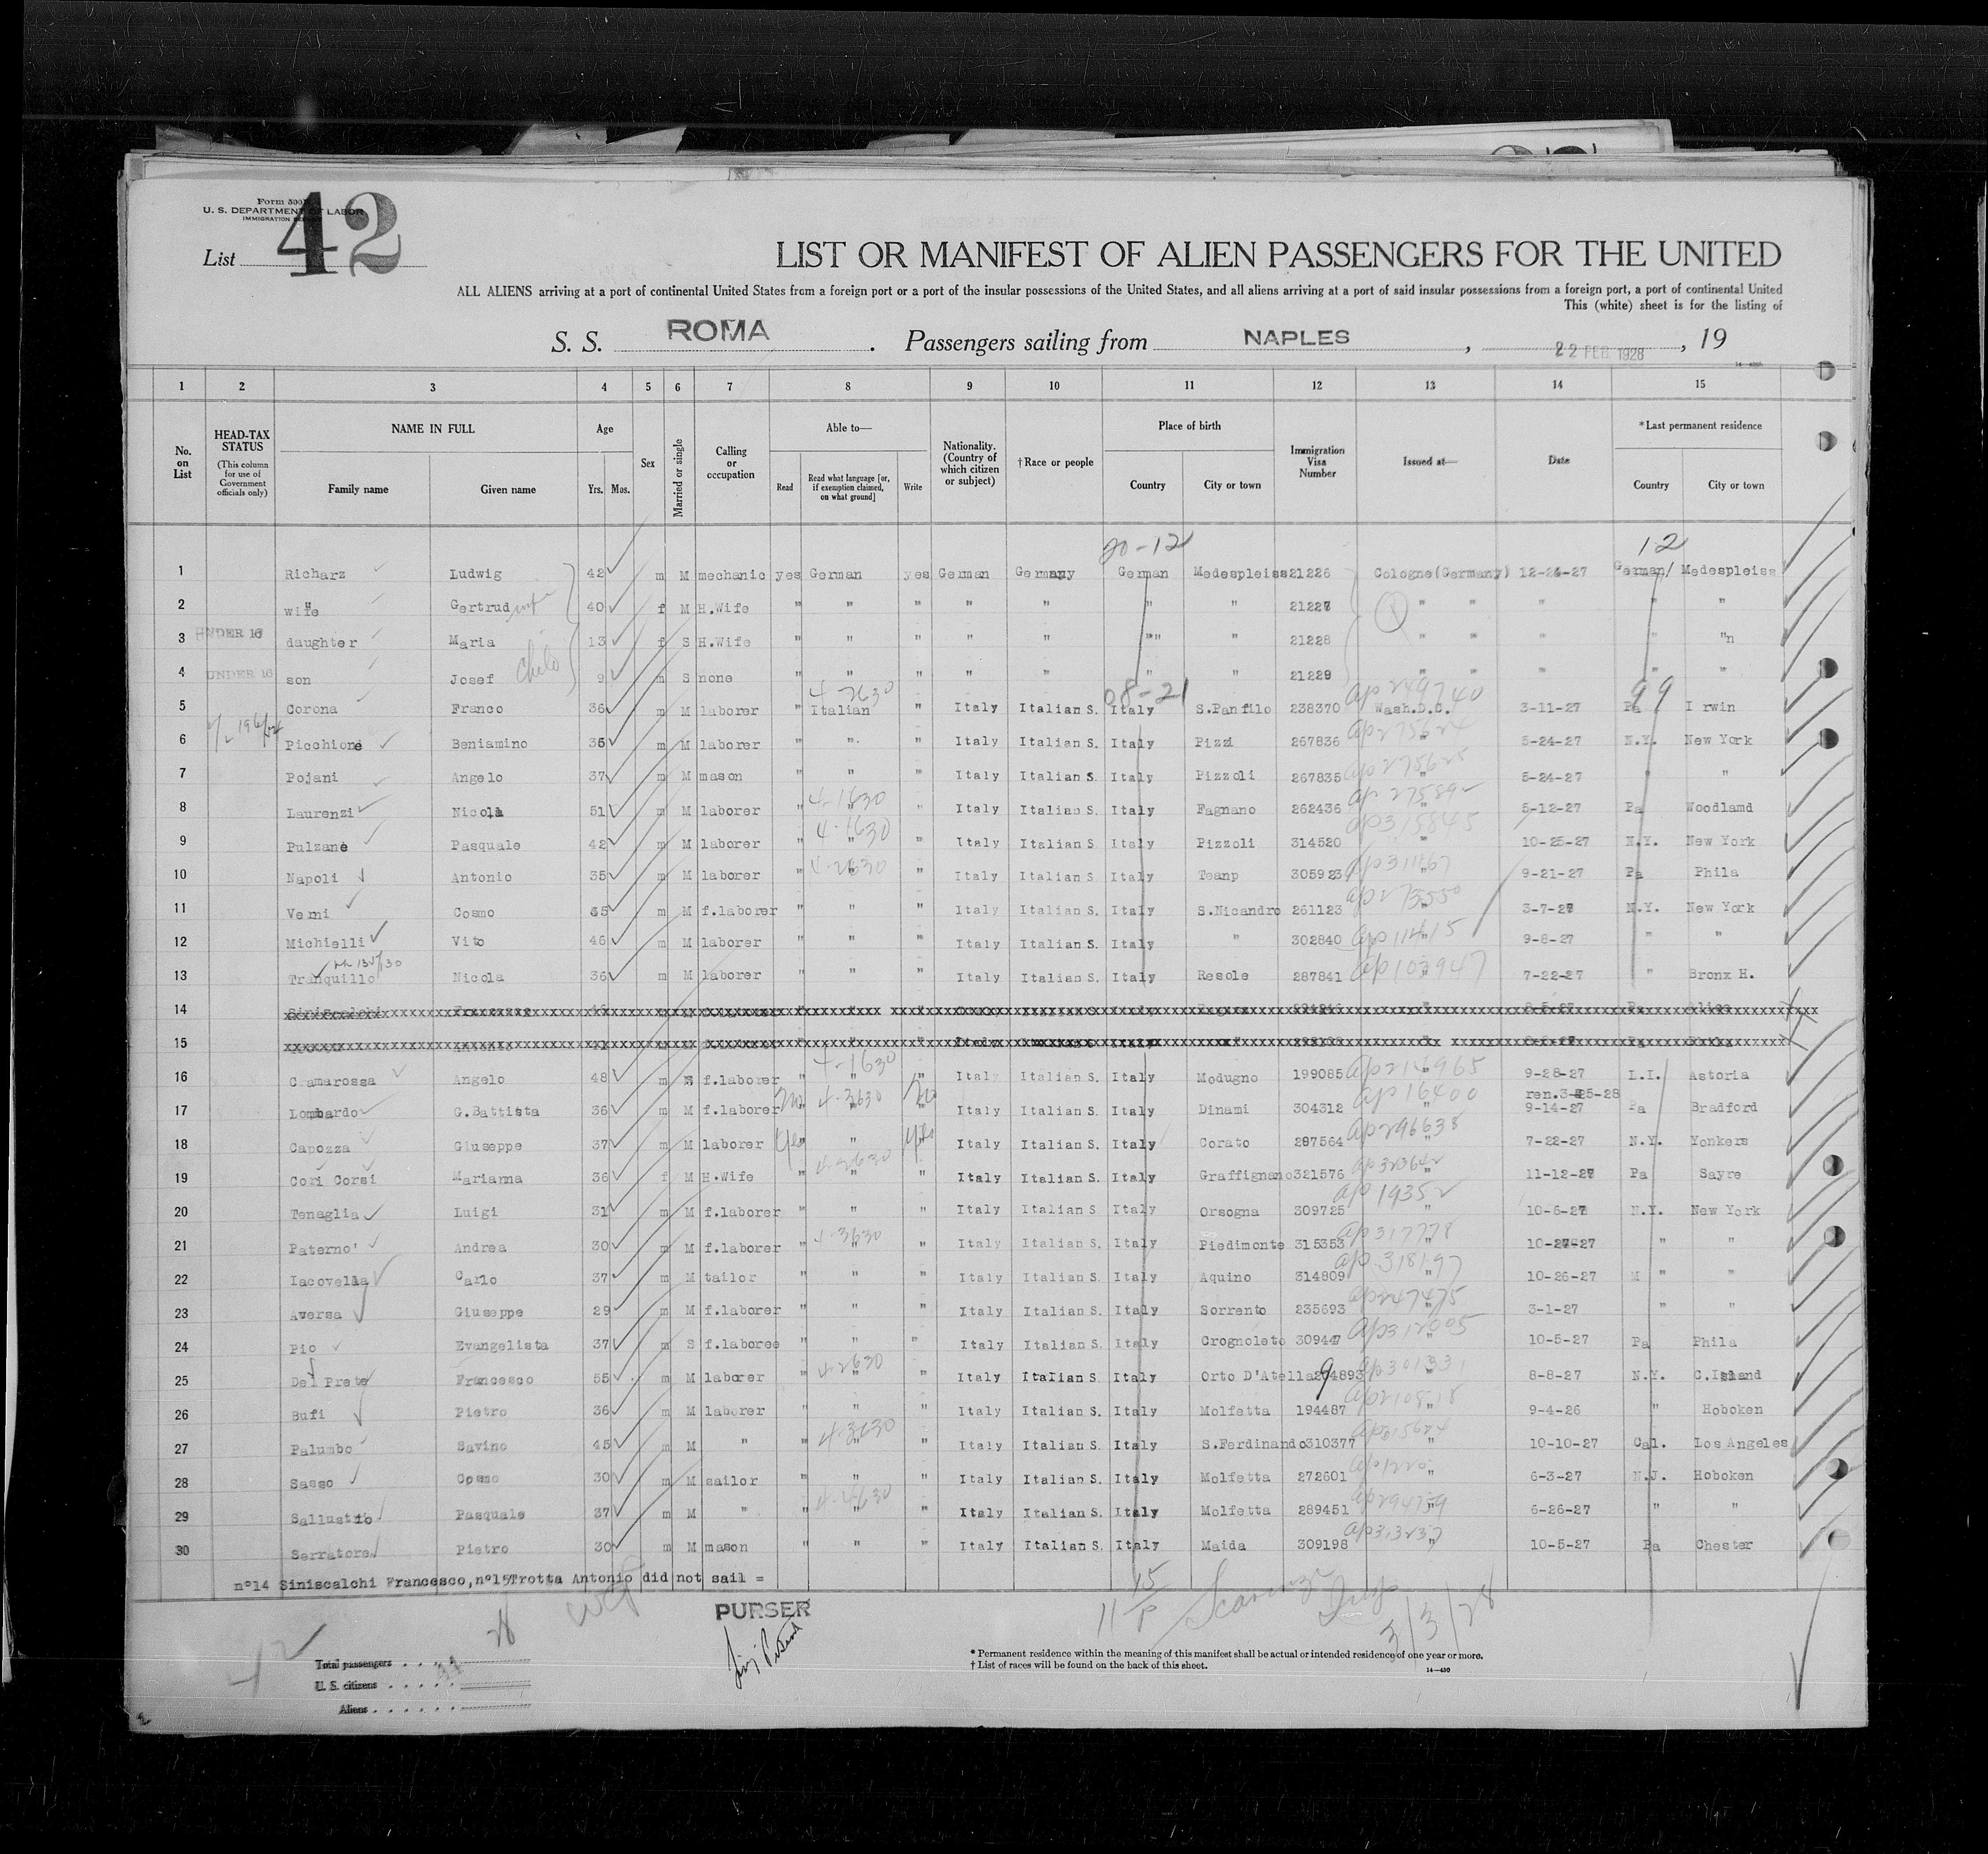 Form 500
U. S. DEPARTMENT OF LABOR
IMMIGRATION
List 42
LIST OR MANIFEST OF ALIEN PASSENGERS FOR THE UNITED
ALL ALIENS arriving at a port of continental United States from a foreign port or a port of the insular possessions of the United States, and all aliens arriving at a port of said insular possessions from a foreign port, a port of continental United
This (white) sheet is for the listing of
S. S. ROMA. Passengers sailing from NAPLES, 22 FEB. 1928, 19
1 2 3 4 5 6 7 8 9 10 11 12 13 14 15
No. on List
HEAD-TAX STATUS (This column for use of Government officials only)
NAME IN FULL
Family name Given name
Age
Yrs. Mos.
Sex
Married or single
Calling or occupation
Able to—
Read Read what language [or, if exemption claimed, on what ground] Write
Nationality. (Country of which citizen or subject)
† Race or people
Place of birth
Country City or town
Immigration Visa Number
Issued at—
Date
* Last permanent residence
Country City or town
20-12 12
1 Richarz Ludwig 42 m M mechanic yes German yes German Germany German Medespleiss 21226 Cologne (Germany) 12-24-27 German/ Medespleiss
2 wife Gertrud wife 40 f M H.Wife " " " " " " " 21227 " " " " "
3 UNDER 16 daughter Maria 13 f S H.Wife " " " " " "" " 21228 " " " " "n
4 UNDER 16 son Josef child 9 m S none " " " " " " " 21229 " " " " "
4-2630 08-21 ap249740 99
5 Corona Franco 36 m M laborer " Italian " Italy Italian S. Italy S.Panfilo 238370 Wash.D.C. 3-11-27 Pa Irwin
6 Picchione Beniamino 36 m M laborer " " " Italy Italian S. Italy Pizzi 267836 " 5-24-27 N.Y. New York
7 Pojani Angelo 37 m M mason " " " Italy Italian S. Italy Pizzoli 267835 ap275625 " 5-24-27 " "
8 Laurenzi Nicola 51 m M laborer " 4-1630 " " Italy Italian S. Italy Fagnano 262436 " 5-12-27 Pa Woodlamd
9 Pulzane Pasquale 42 m M laborer " 4-1630 " " Italy Italian S. Italy Pizzoli 314520 ap315845 " 10-25-27 N.Y. New York
10 Napoli Antonio 35 m M laborer " 4-2630 " " Italy Italian S. Italy Teanp 305923 " 9-21-27 Pa Phila
11 Verni Cosmo 45 m M f.laborer " " " Italy Italian S. Italy S.Nicandro 261123 ap273550 " 3-7-27 N.Y. New York
12 Michielli Vito 46 m M laborer " " " Italy Italian S. Italy " 302840 ap11415 " 9-8-27 " "
13 Tranquillo Nicola 36 m M laborer " " " Italy Italian S. Italy Resole 287841 ap103947 " 7-22-27 " Bronx H.
14 Siniscalchi
15
16 Camarossa Angelo 48 m f.laborer " 4-1630 " " Italy Italian S. Italy Modugno 199085 ap214965 " 9-28-27 L.I. Astoria
17 Lombardo G.Battista 36 m M f.laborer no 4-3630 " no Italy Italian S. Italy Dinami 304312 ap16400 ren.3-25-28 9-14-27 Pa Bradford
18 Capozza Giuseppe 37 m M laborer yes " yes Italy Italian S. Italy Corato 287564 ap296638 " 7-22-27 N.Y. Yonkers
19 Cori Corsi Marianna 36 f M H.Wife " " " Italy Italian S. Italy Graffignano 321576 " 11-12-27 Pa Sayre
20 Tenaglia Luigi 31 m M f.laborer " " " Italy Italian S Italy Orsogna 309725 ap19352 " 10-5-27 N.Y. New York
21 Paterno' Andrea 30 m M f.laborer " 4-3630 " " Italy Italian S. Italy Piedimonte 315353 ap317778 10-27-27 " "
22 Iacovella Carlo 37 m M tailor " " " Italy Italian S. Italy Aquino 314809 ap318197 " 10-26-27 " "
23 Aversa Giuseppe 29 m M f.laborer " " " Italy Italian S. Italy Sorrento 235693 ap247475 " 3-1-27 " "
24 Pio Evangelista 37 m S f.laboree " " " Italy Italian S. Italy Crognoleto 309447 ap312005 " 10-5-27 Pa Phila
25 Del Prete Francesco 55 m M laborer " 4-2630 " " Italy Italian S. Italy Orto D'Atella 294893 ap301331 " 8-8-27 N.Y. C.Island
26 Bufi Pietro 36 m M laborer " " " Italy Italian S. Italy Molfetta 194487 " 9-4-26 " Hoboken
27 Palumbo Savino 45 m M " " 4-3630 " " Italy Italian S. Italy S.Ferdinando 310377 " 10-10-27 Cal. Los Angeles
28 Sasso Cosmo 30 m M sailor " " " Italy Italian S. Italy Molfetta 272601 " 6-3-27 N.J. Hoboken
29 Sallustio Pasquale 37 m M " " " " Italy Italian S. Italy Molfetta 289451 " 6-26-27 " "
30 Serratore Pietro 30 m M mason " " " Italy Italian S. Italy Maida 309198 ap313237 " 10-5-27 Pa Chester
nº14 Siniscalchi Francesco, nº15 Trotta Antonio did not sail =
PURSER
3/3/28
42 28
Total passengers
U. S. citizens
Aliens
* Permanent residence within the meaning of this manifest shall be actual or intended residence of one year or more.
† List of races will be found on the back of this sheet.
14—430